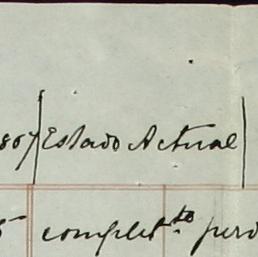 1867 Estado Actual
5 complet.to perd